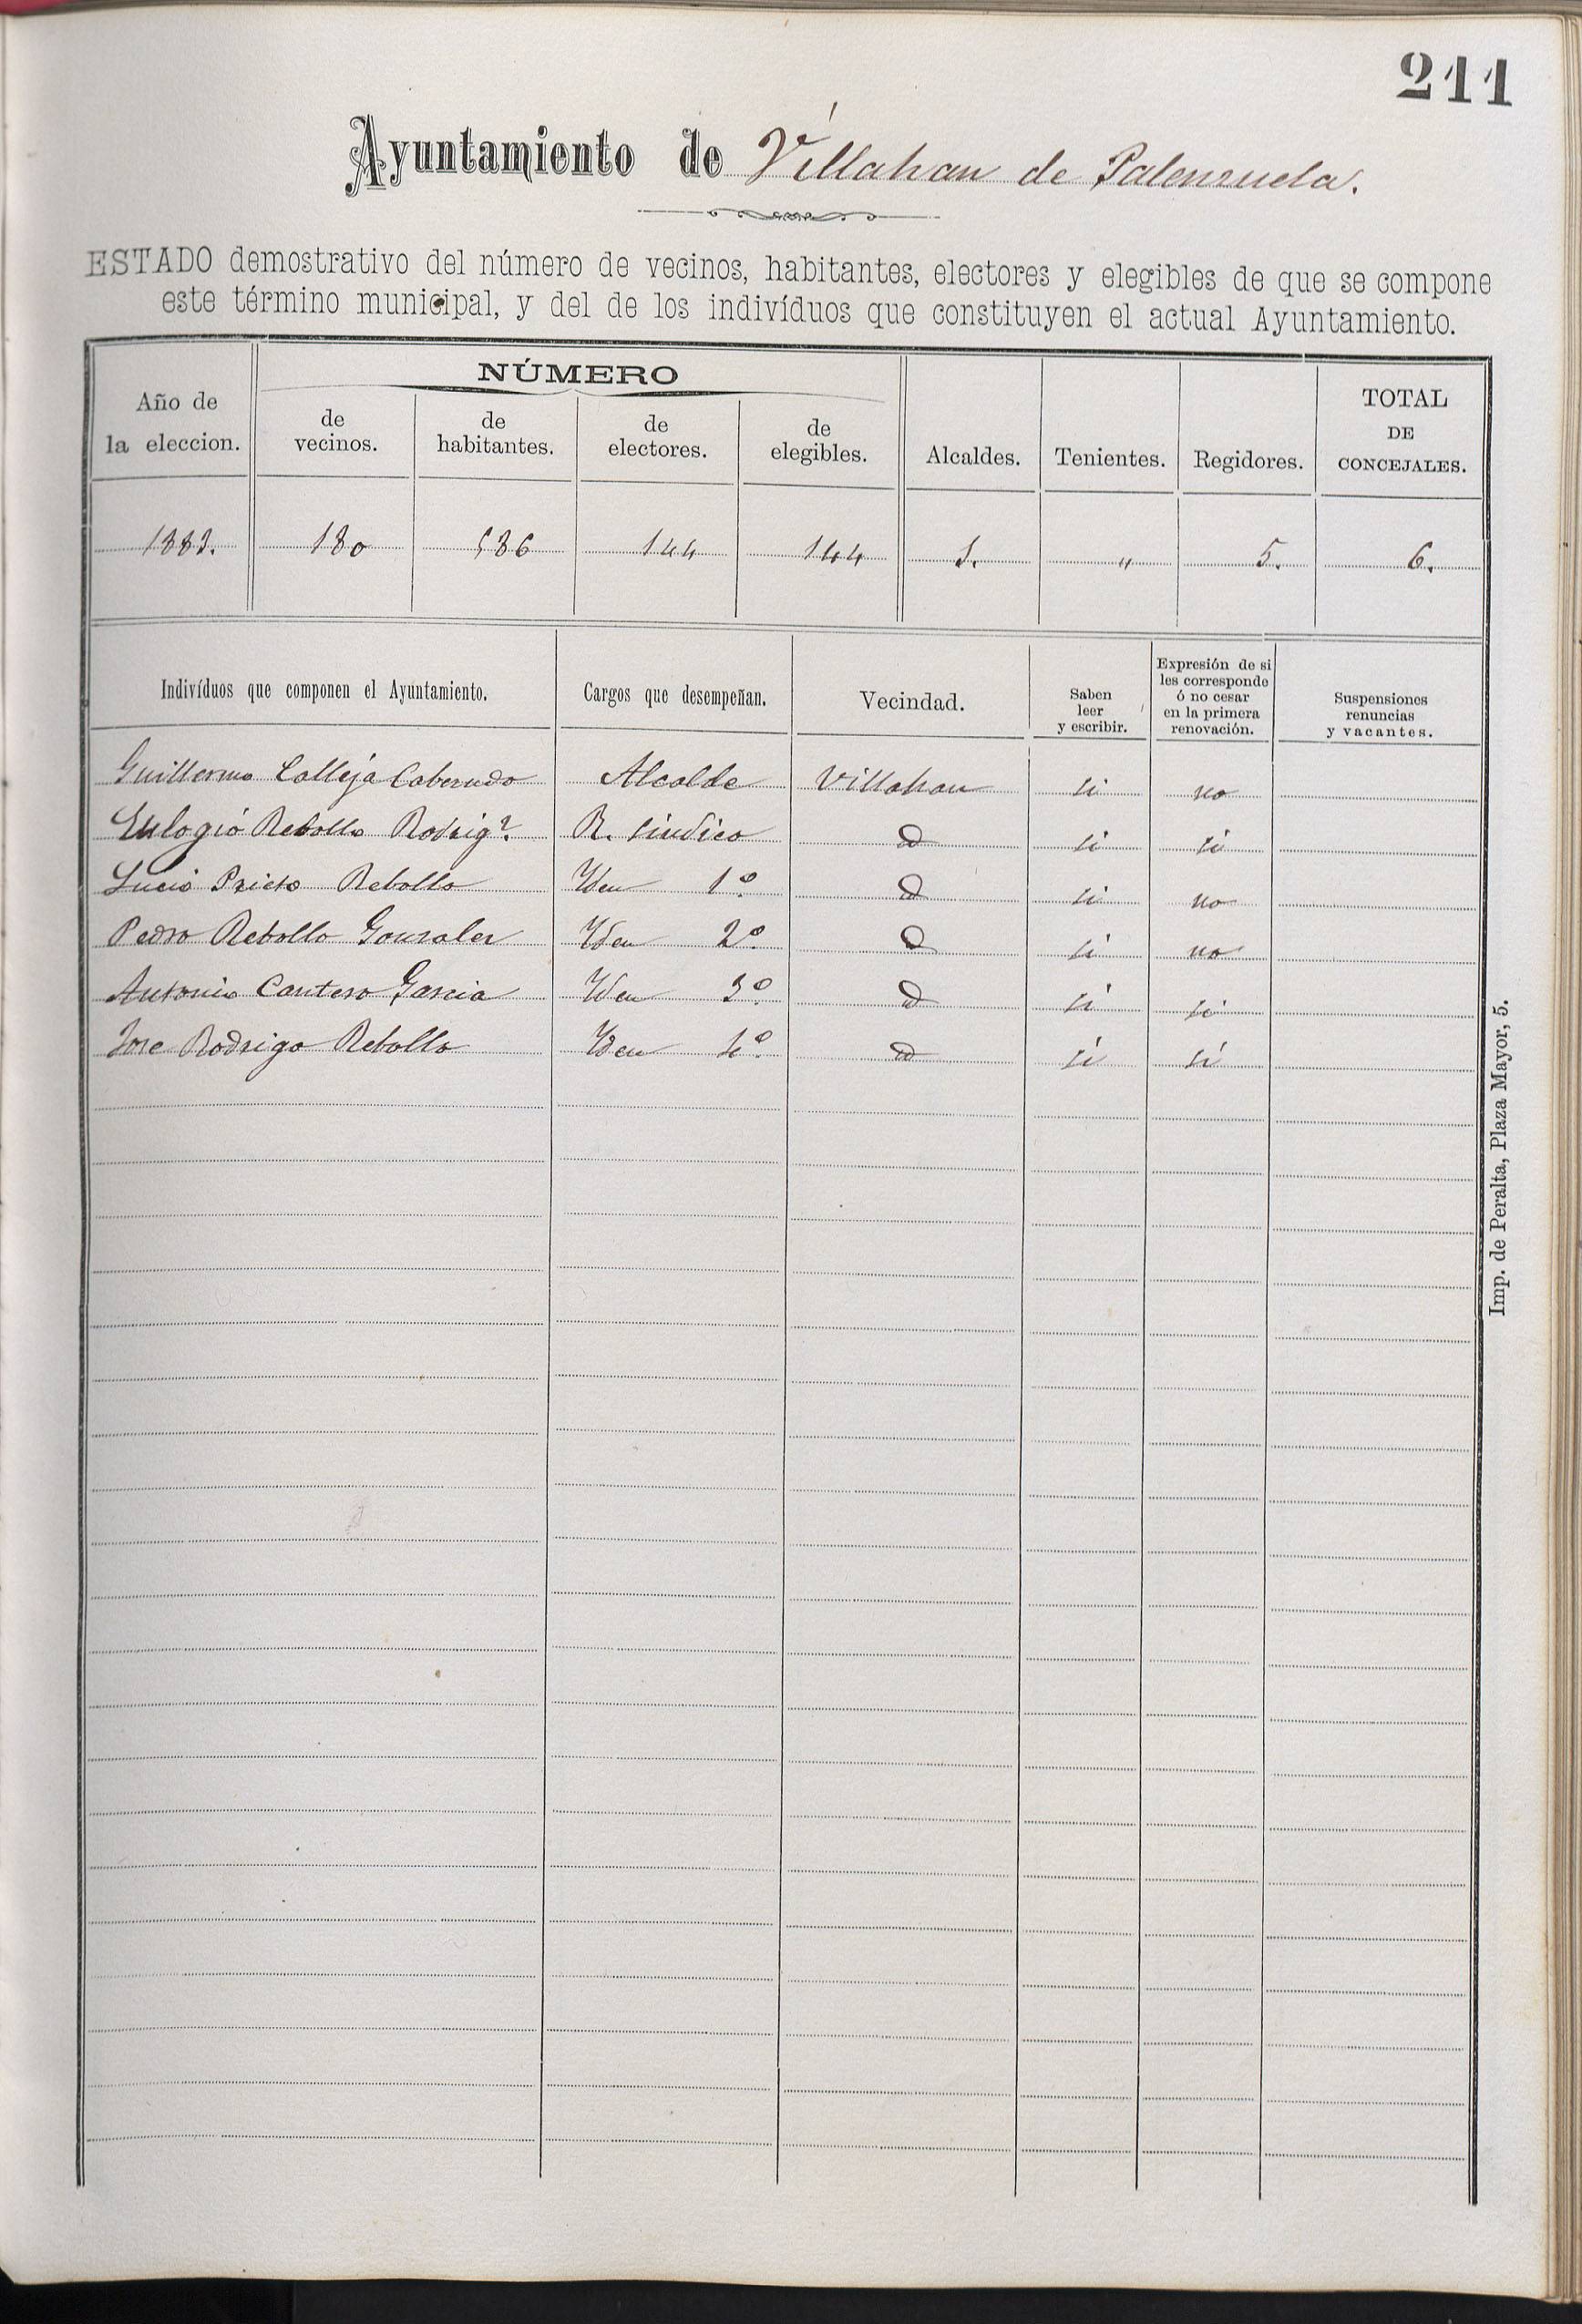 211
Ayuntamiento de Villahan de Palenzuela.
ESTADO demostrativo del número de vecinos, habitantes, electores y elegibles de que se compone
este término municipal, y del de los indivíduos que constituyen el actual Ayuntamiento.
Año de la eleccion. NÚMERO de vecinos. de habitantes. de electores. de elegibles. Alcaldes. Tenientes. Regidores. TOTAL DE CONCEJALES.
1883. 180 586 144 144 1. " 5. 6.
Indivíduos que componen el Ayuntamiento. Cargos que desempeñan. Vecindad. Saben leer y escribir. Expresión de si les corresponde ó no cesar en la primera renovación. Suspensiones renuncias y vacantes.
Guillermo Calleja Cabezudo Alcalde Villahan si no
Eulogio Rebollo Rodrigz. R. sindico D si si
Lucio Prieto Rebollo Yden 1º D si no
Pedro Rebollo Gonzalez Yden 2º D si no
Antonio Cantero Garcia Yden 3º D si si
Jose Rodrigo Rebollo Yden 4º D si si
Imp. de Peralta, Plaza Mayor, 5.